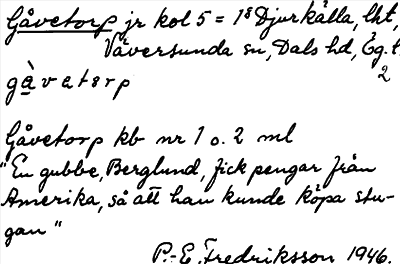 Gåvetorp jr kol 5 = 1⁸ Djurkälla, lht,
Väversunda sn, Dals hd, Ög. l.
2
gàvetorp
Gåvetorp kb nr 1 o. 2 ml
"En gubbe, Berglund, fick pengar från
Amerika, så att han kunde köpa stu-
gan"
P.-E. Fredriksson 1946.